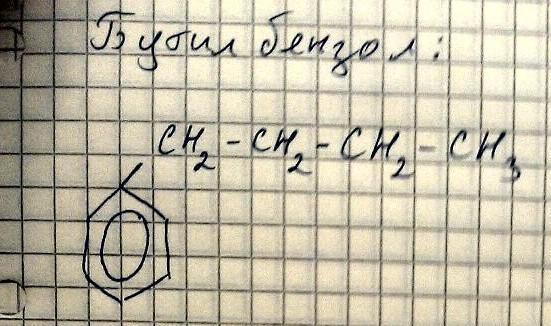 Бутил бензол:
CH₂ - CH₂ - CH₂ - CH₃